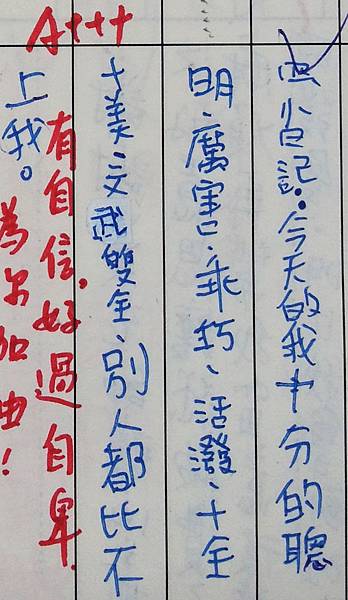 四省記:今天的我十分的聰
明、厲害、乖巧、活潑、十全
十美、文武雙全、別人都比不
上我。
A+++
有自信,好過自卑.
為尔加油!